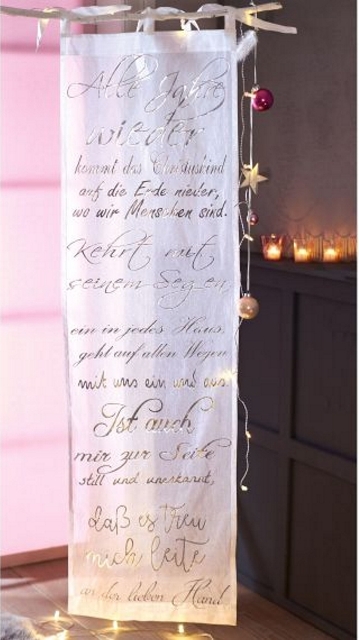 Alle Jahre
wieder
kommt das Christuskind
auf die Erde nieder,
wo wir Menschen sind.
Kehrt mit
seinem Segen
ein in jedes Haus,
geht auf allen Wegen
mit uns ein und aus.
Ist auch
mir zur Seite
still und unerkannt,
daß es treu
mich leite
an der lieben Hand